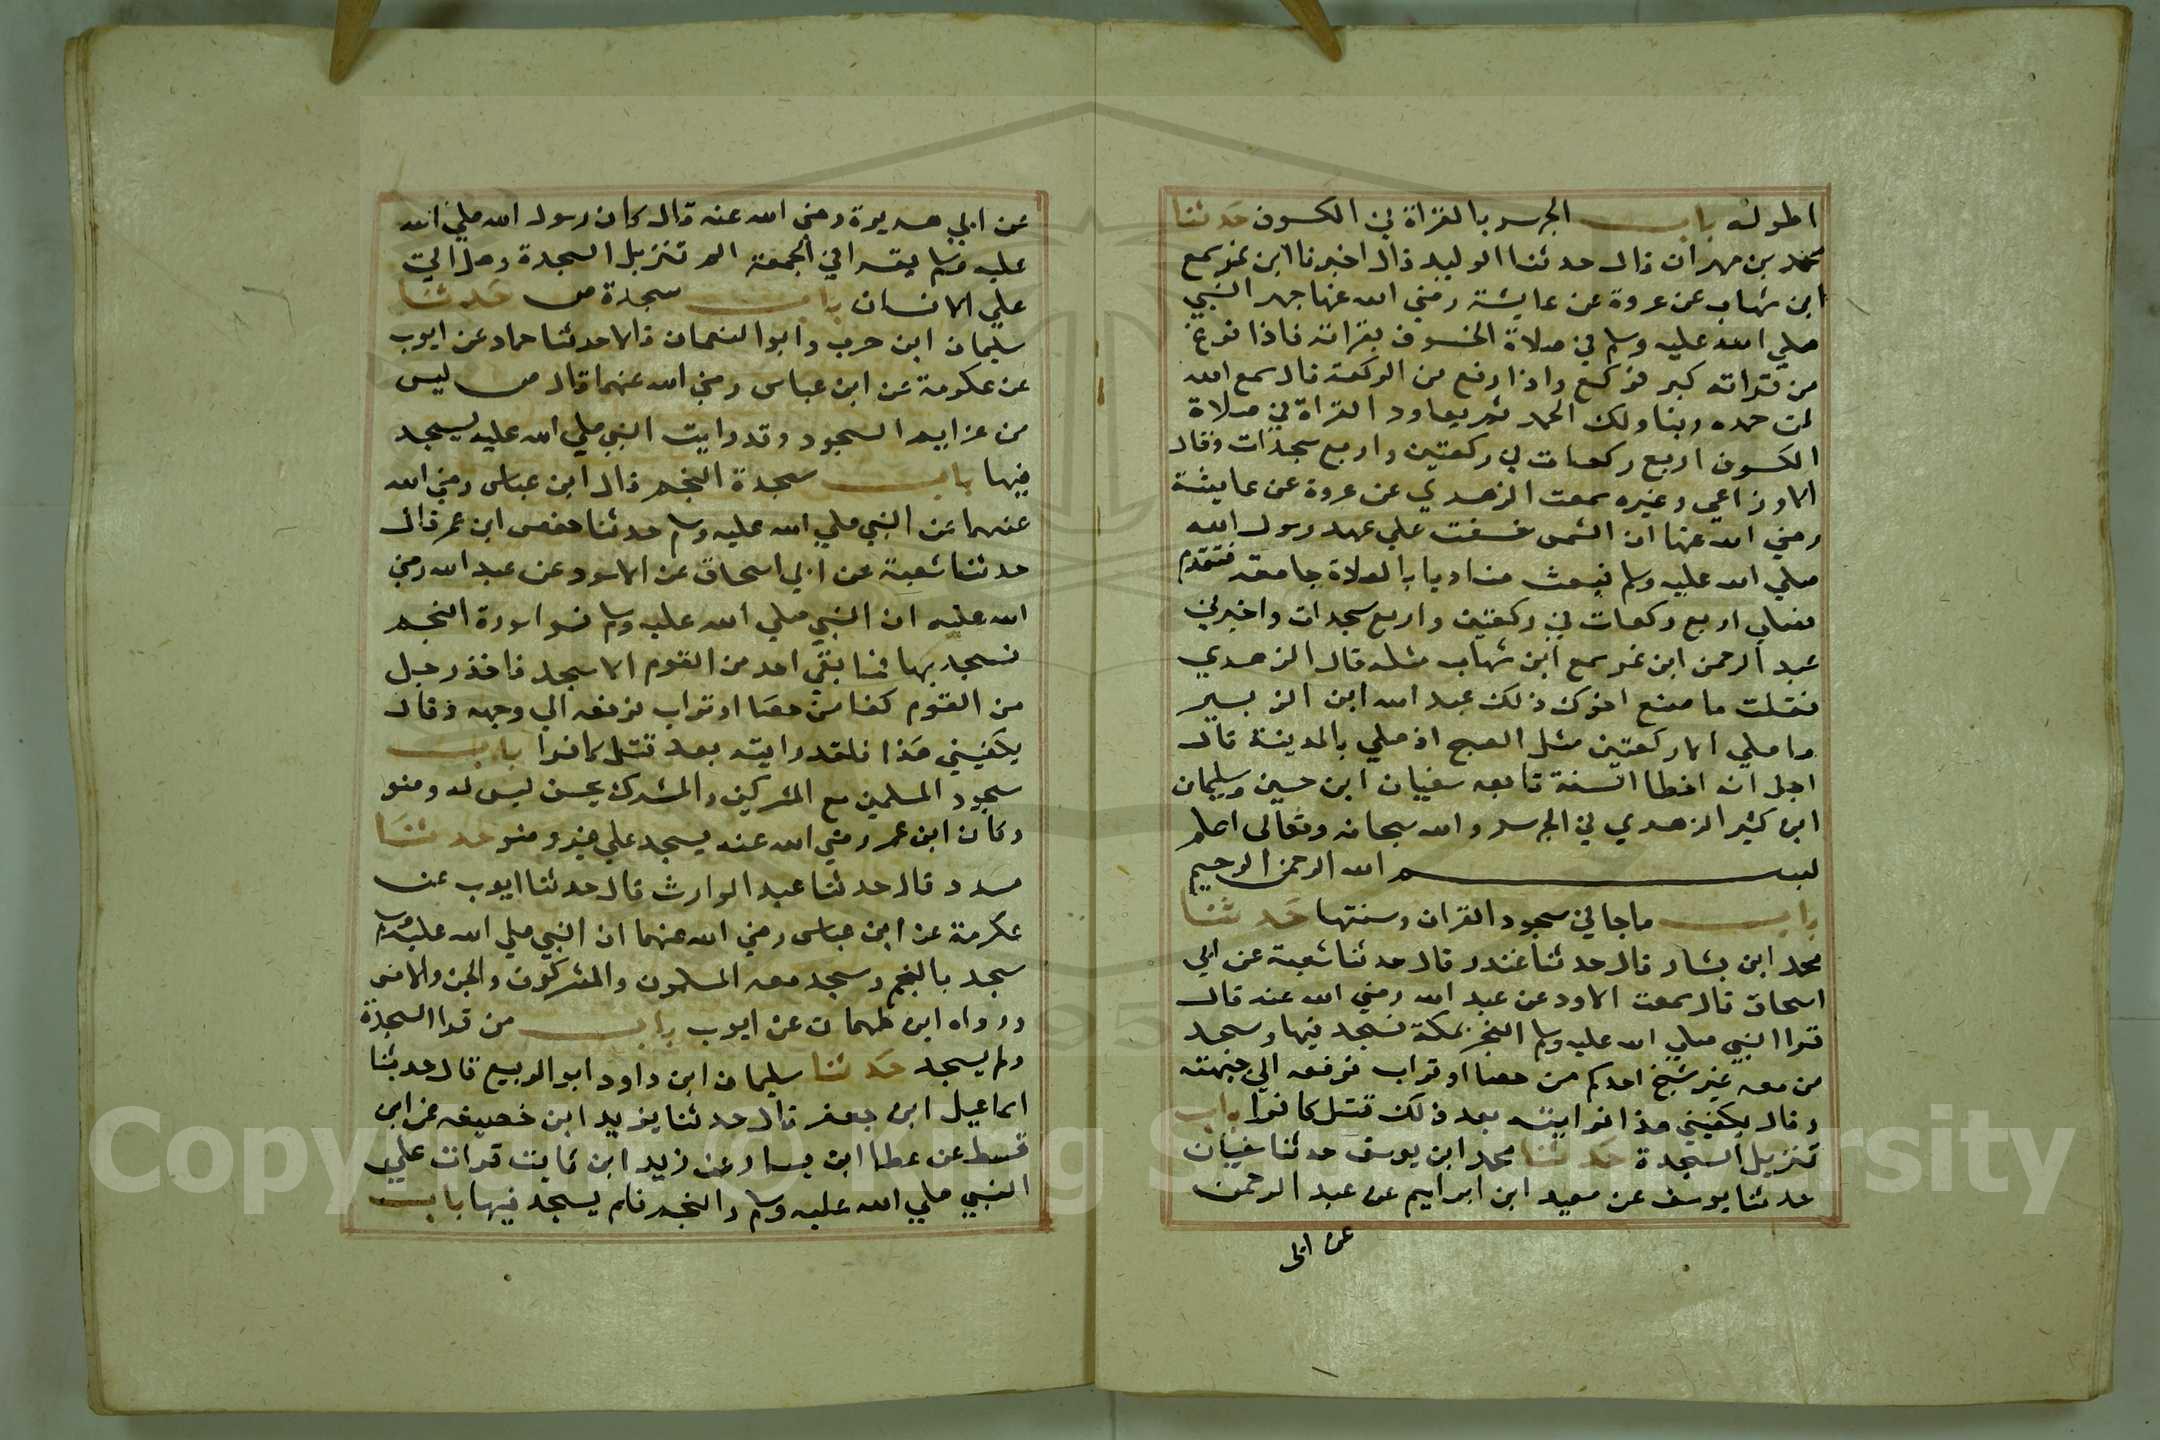 اطول باب الجهر بالقراة في الكسوف حدثنا
محمد بن مهران قال حدثنا الوليد قال اخبرنا ابن نمر سمع
ابن شهاب عن عروة عن عايشة رضي الله عنها جهر النبي
صلي الله عليه وسلم في صلاة الخسوف بقراته فاذا فرغ
من قراته كبر فركع واذا رفع من الركعة قال سمع الله
لمن حمده ربنا ولك الحمد ثم يعاود القراة في صلاة
الكسوف اربع ركعات في ركعتين واربع سجدات وقال
الاوزاعي وغيره سمعت الزهري عن عروة عن عايشة
رضي الله عنها ان الشمس خسفت علي عهد رسول الله
صلي الله عليه وسلم فبعث مناديا بالصلاة جامعة فتقدم
فصلي اربع ركعات في ركعتين واربع سجدات واخبرني
عبد الرحمن ابن نمر سمع ابن شهاب مثله قال الزهري
فقلت ما صنع اخوك ذلك عبد الله ابن الزبير
ما صلي الا ركعتين مثل الصبح اذ صلي بالمدينة قال
اجل انه اخطا السنة تابعه سفيان ابن حسين وسليمان
ابن كثير الزهري في الجهر والله سبحانه وتعالى اعلم
بسم الله الرحمن الرحيم
باب ماجا في سجود القران وسنتها حدثنا
محمد ابن بشار قال حدثنا غندر قال حدثنا شعبة عن ابي
اسحاق قال سمعت الاود عن عبد الله رضي الله عنه قال
قرا النبي صلي الله عليه وسلم النجم بمكة فسجد فيها وسجد
من معه غير شيخ احدكم من حصا او تراب فرفعه الي جبهته
وقال يكفيني هذا فرايته بعد ذلك قتل كافرا باب
تنزيل السجدة حدثنا محمد ابن يوسف حدثنا سفيان
حدثنا يوسف عن سعيد ابن ابراهيم عن عبد الرحمن
عن ابي
عن ابي هريرة رضي الله عنه قال كان رسول الله صلي الله
عليه وسلم يقرا في الجمعة الم تنزيل السجدة وهل اتي
علي الانسان باب سجدة ص حدثنا
سليمان ابن حرب وابو النعمان قالا حدثنا حماد عن ايوب
عن عكرمة عن ابن عباس رضي الله عنهما قال ص ليس
من عزايم السجود وقد رايت النبي صلي الله عليه يسجد
فيها باب سجدة النجم قال ابن عباس رضي الله
عنهما عن النبي صلي الله عليه وسلم حدثنا حفص ابن عمر قال
حدثنا شعبة عن ابي اسحاق عن الاسود عن عبد الله رضي
الله عليه ان النبي صلي الله عليه وسلم قرا سورة النجم
فسجد بها فما بقي احد من القوم الا سجد فاخذ رجل
من القوم كفا من حصا او تراب فرفعه الي وجهه وقال
يكفيني هذا فلقد رايته بعد قتل كافرا باب
سجود المسلمين مع المشركين والمشرك نجس ليس له وضو
وكان ابن عمر رضي الله عنه يسجد علي غير وضو حدثنا
مسدد قال حدثنا عبد الوارث قال حدثنا ايوب عن
عكرمة عن ابن عباس رضي الله عنهما ان النبي صلي الله عليه وسلم
سجد بالنجم وسجد معه المسلمون والمشركون والجن والانس
ورواه ابن طهمان عن ايوب باب من قرا السجدة
ولم يسجد حدثنا سليمان ابن داود ابو الربيع قال حدثنا
اسماعيل ابن جعفر قال حدثنا يزيد ابن خصيفه عن ابن
قسط عن عطا ابن يسار عن زيد ابن ثابت قرات علي
النبي صلي الله عليه وسلم والنجم فلم يسجد فيها باب
Copyright © King Saud University